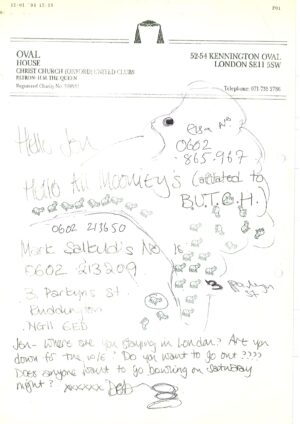 P01
OVAL
HOUSE
CHRIST CHURCH (OXFORD) UNITED CLUBS
PATRON: HM THE QUEEN
Registered Charity No.
52-54 KENNINGTON OVAL
LONDON SE11 5SW
Telephone: 071-735 2786
Hello Jen
No
0602
865-967
Hello All Mooney's (related to
B.U.T.C.H.)
0602 213650
Mark Salkuld's No. is
0602 213209
3 Partyns St.
Ruddington
NG11 6ED
3 Partyns
St
Jen- Where are you staying in London? Are you
down for the w/e? Do you want to go out????
Does anyone want to go bowling on Saturday
night? xxxxxx Deb